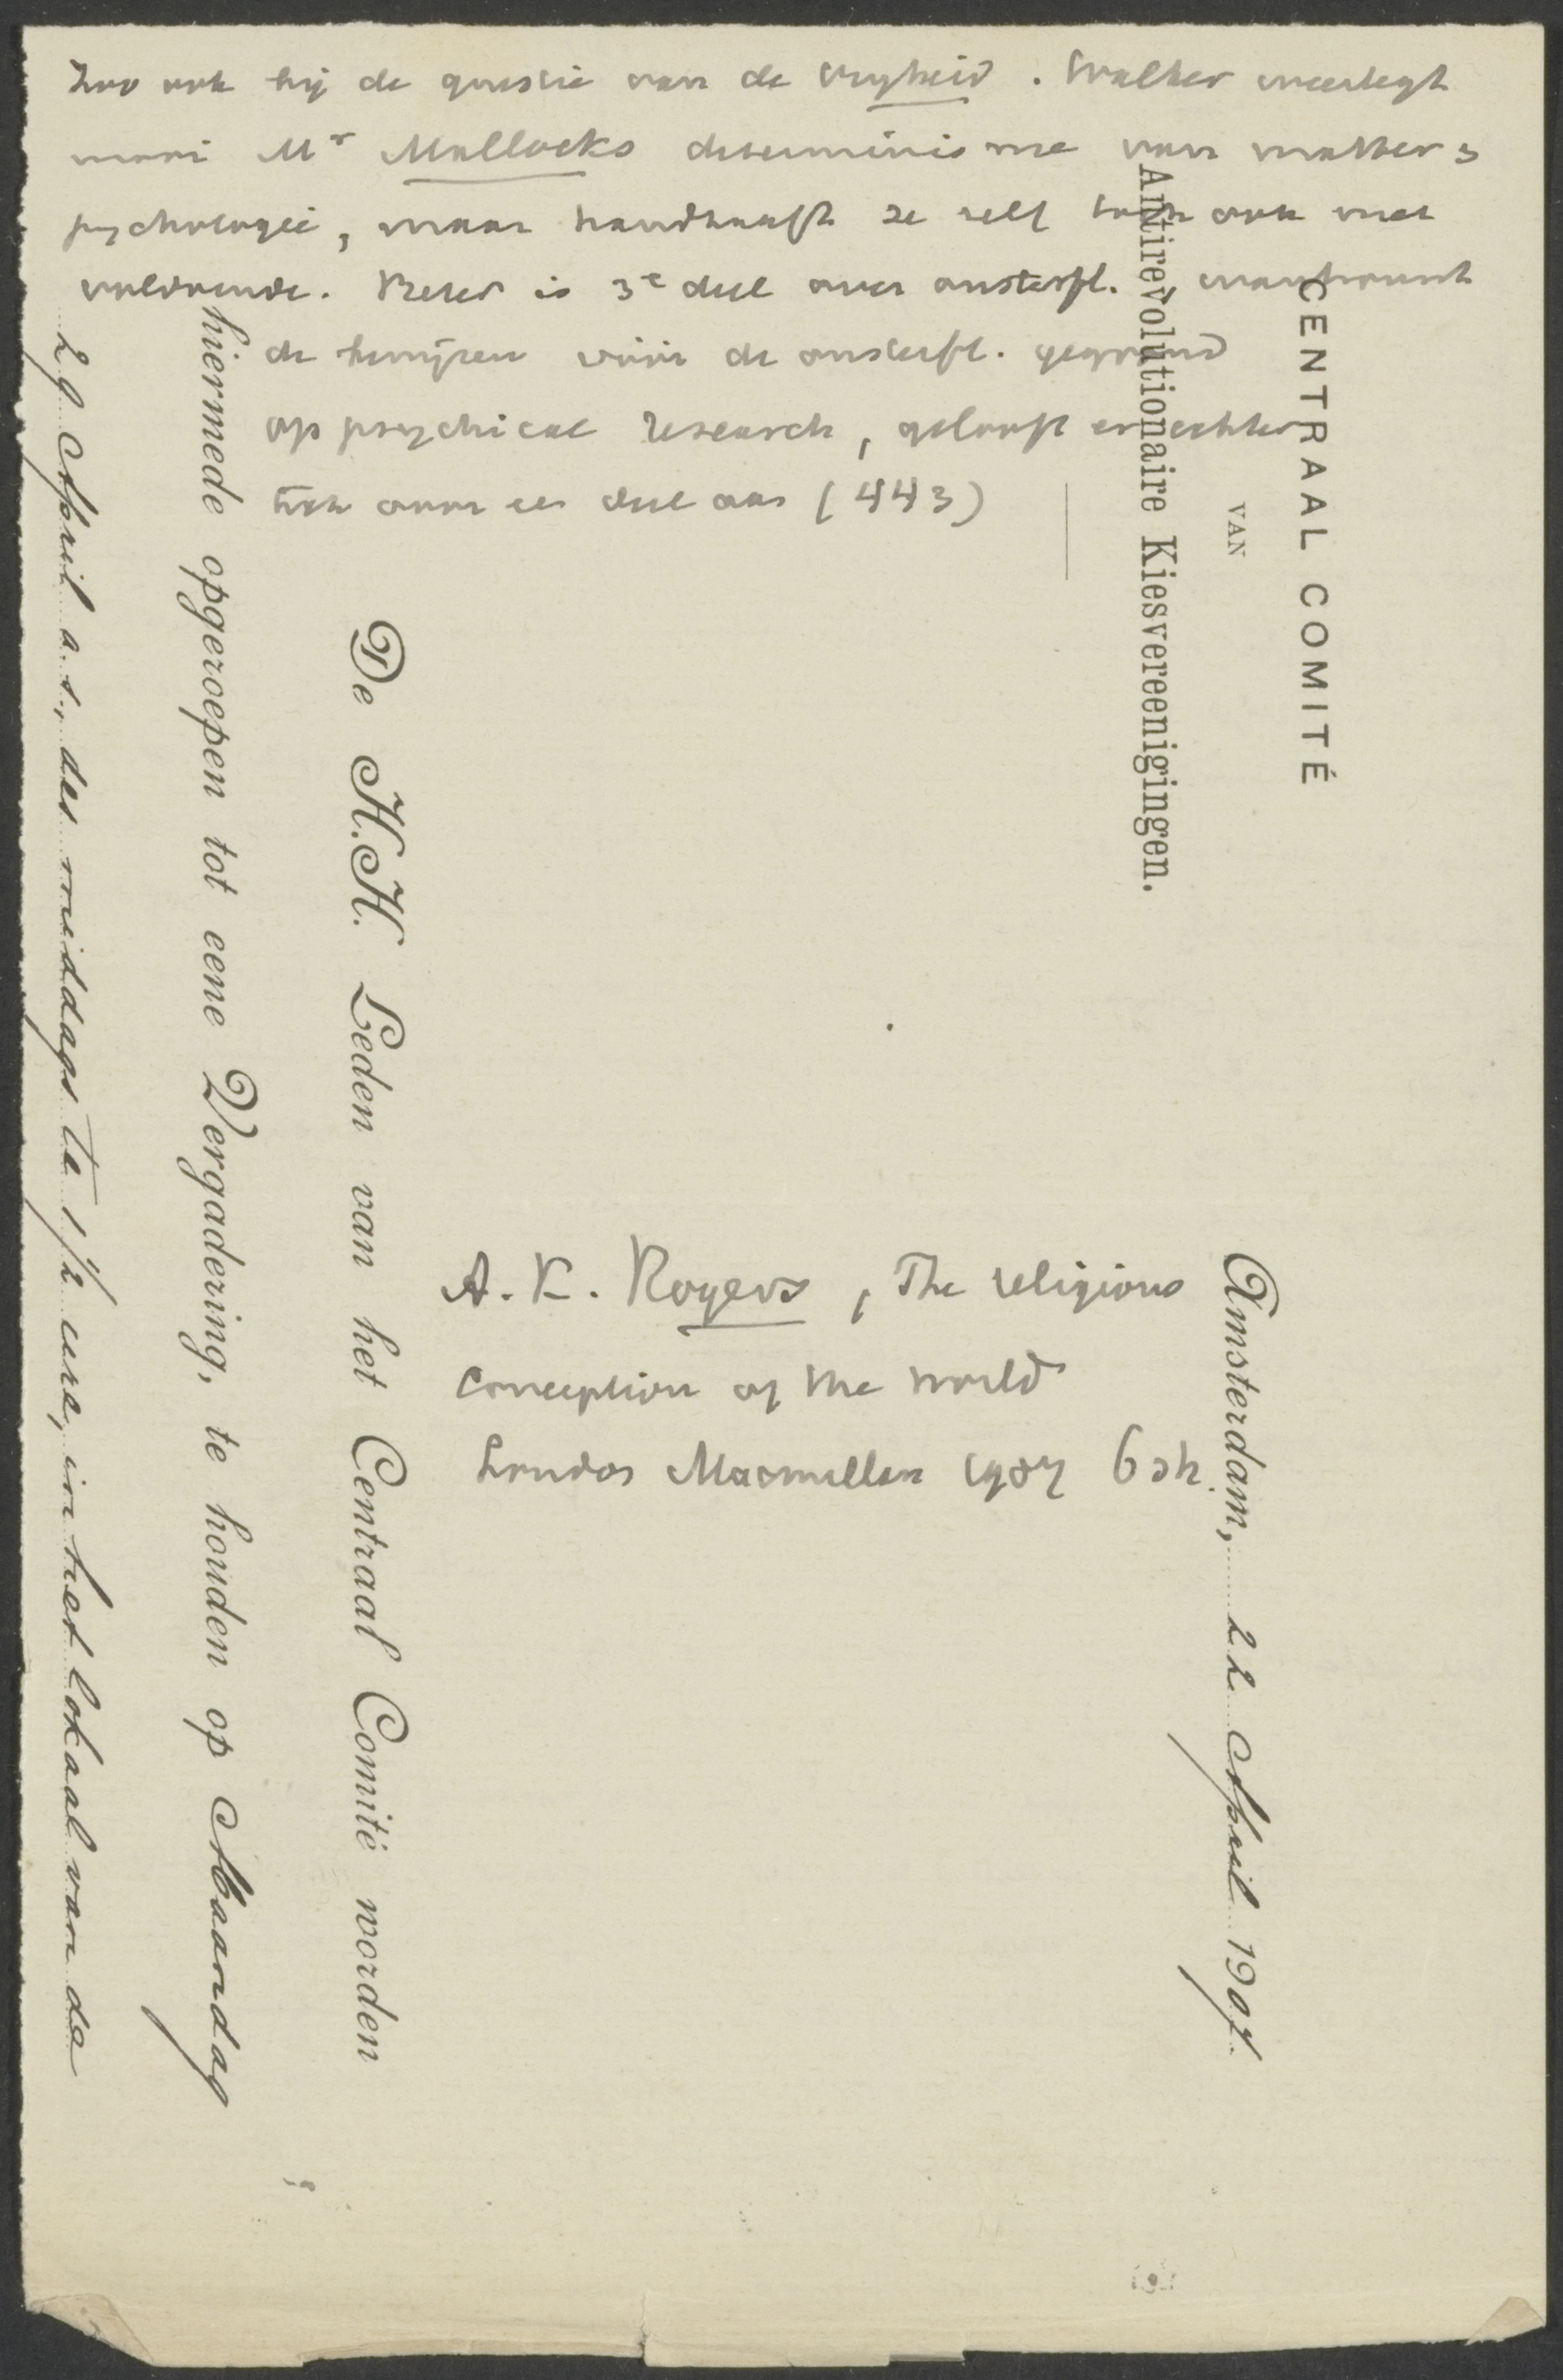 Zoo ook bij de questie van de vrijheid. Walker weerlegt
mooi Mr Mallocks determinisme van matter &
psychologie, maar handhaaft ze zelf toch ook niet
voldoende. Beter is 3e deel over onsterfl.
de bewijzen vóór de onsterfl. gegrond
op psychical research, gelooft er echter
toch voor een deel aan (443)
A. K. Rogers, The religious
conception of the world
London Macmillan 1907 6 sh.
CENTRAAL COMITÉ
VAN
Antirevolutionaire Kiesvereenigingen.
Amsterdam, 22 April 1907.
De H.H. Leden van het Centraal Comité worden
hiermede opgeroepen tot eene Vergadering, te houden op Maandag
29 April a.s., des middags te 1½ ure, in het lokaal van de